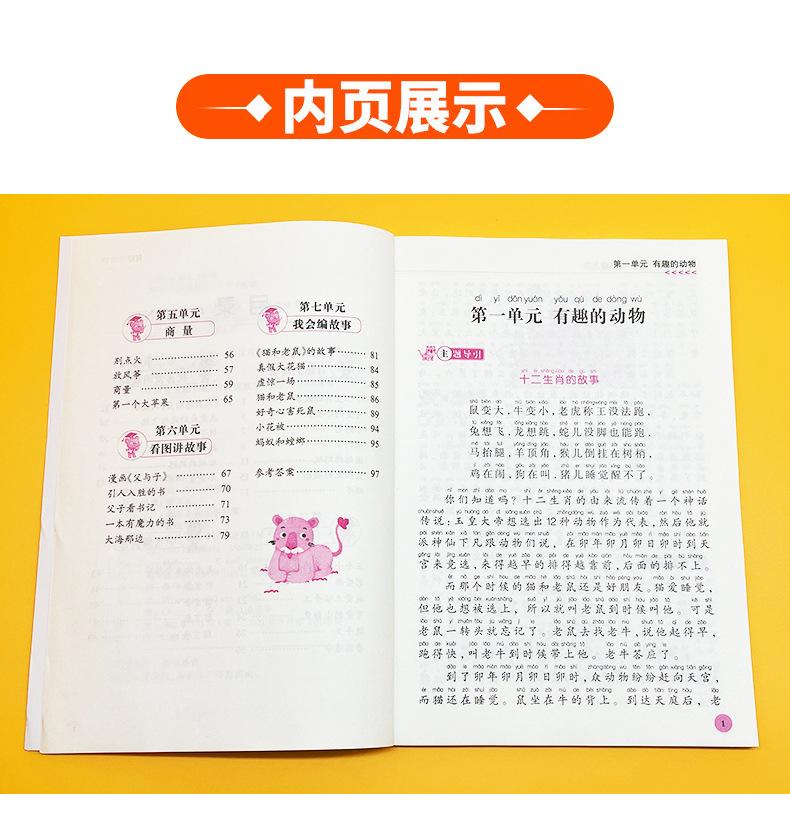 内页展示
第五单元
商 量
别点火 56
放风筝 57
商量 59
第一个大苹果 65
第六单元
看图讲故事
漫画《父与子》 67
引人入胜的书 70
父子看书记 71
一本有魔力的书 73
大海那边 79
第七单元
我会编故事
《猫和老鼠》的故事 81
真假大花猫 84
虚惊一场 85
猫和老鼠 86
好奇心害死鼠 89
小花被 94
蚂蚁和螳螂 95
参考答案 97
第一单元 有趣的动物
dì yī dānyuán yǒu qù de dòng wù
第一单元 有趣的动物
主题导引
shí èr shēngxiào de gù shi
十二生肖的故事
鼠变大，牛变小，老虎称王没法跑，
兔想飞，龙想跳，蛇儿没脚也能跑。
马抬腿，羊顶角，猴儿倒挂在树梢，
鸡在闹，狗在叫，猪儿睡觉醒不了。
你们知道吗？十二生肖的由来流传着一个神话
传说：玉皇大帝想选出12种动物作为代表，然后他就
派神仙下凡跟动物们说，在卯年卯月卯日卯时到天
宫来竞选，来得越早的排得越靠前，后面的排不上。
而那个时候的猫和老鼠还是好朋友。猫爱睡觉，
但他也想被选上，所以就叫老鼠到时候叫他。可是
老鼠一转头就忘记了。老鼠去找老牛，说他起得早，
跑得快，叫老牛到时候带上他。老牛答应了。
到了卯年卯月卯日卯时，众动物纷纷赶向天宫，
而猫还在睡觉。鼠坐在牛的背上。到达天庭后，老
1